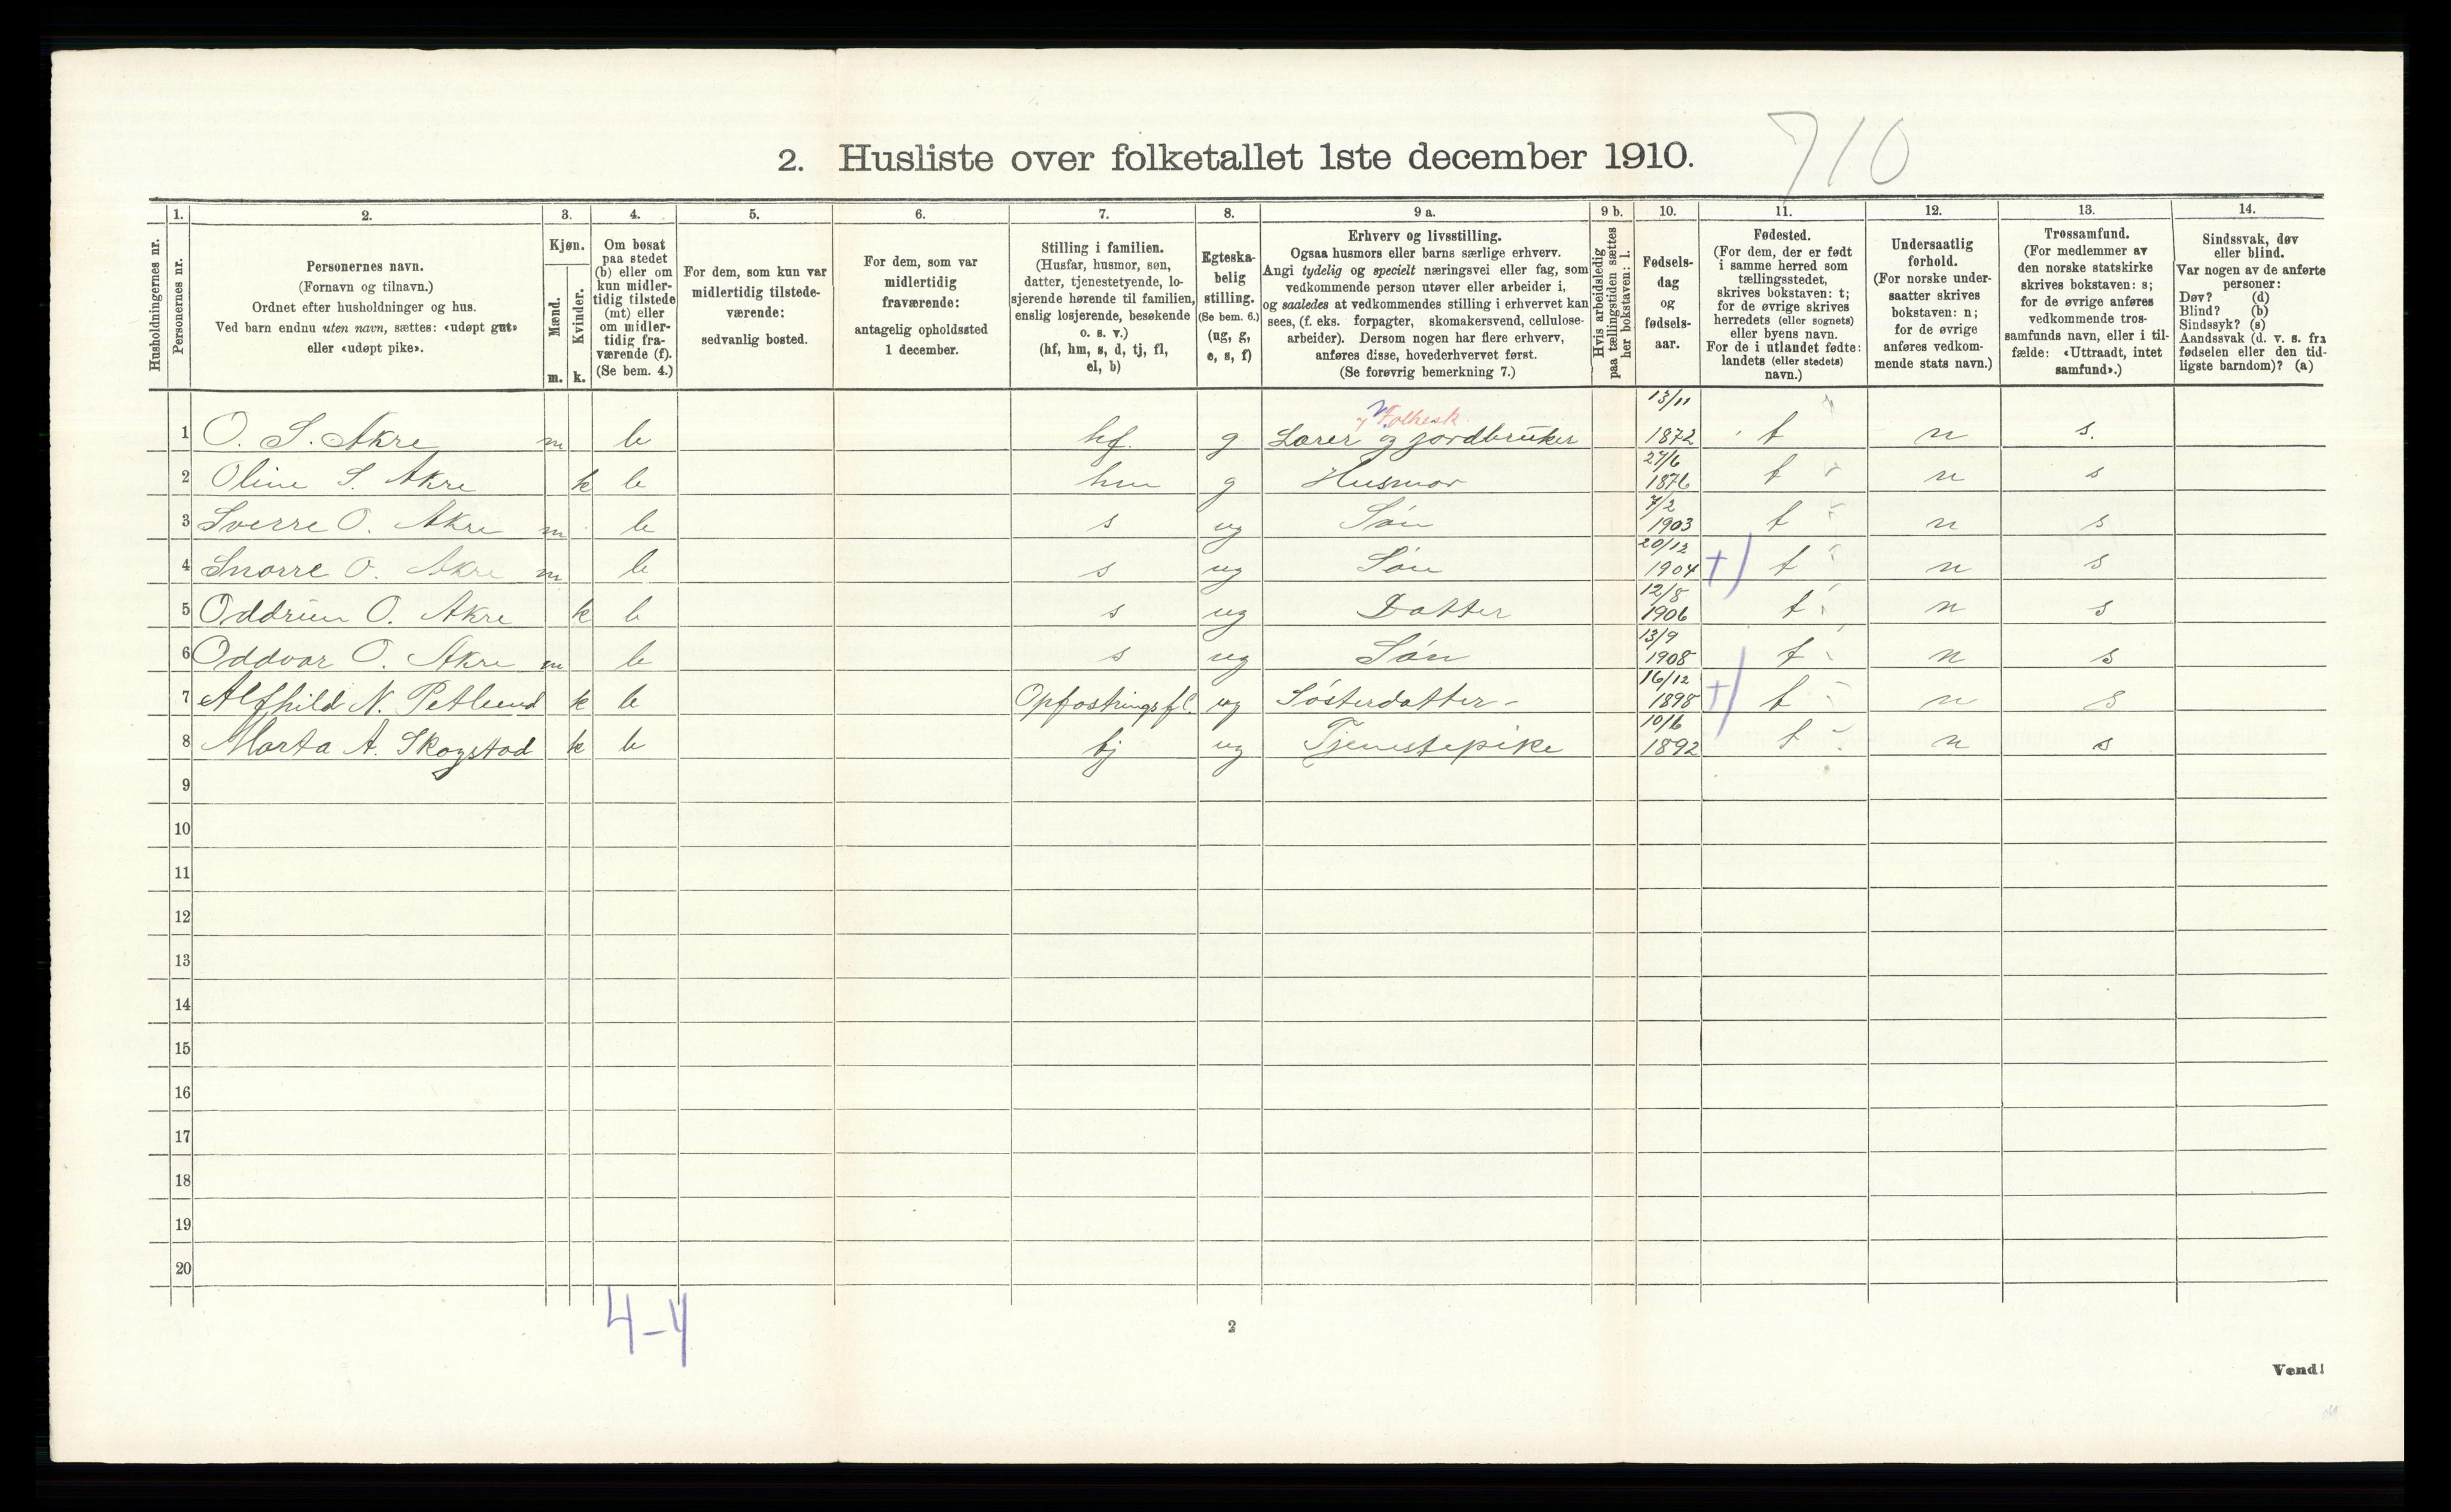 710
2. Husliste over folketallet 1ste december 1910.
Husholdningernes nr.
1. Personernes nr.
2. Personernes navn.
(Fornavn og tilnavn.)
Ordnet efter husholdninger og hus.
Ved barn endnu uten navn, sættes: «udøpt gut»
eller «udøpt pike».
3. Kjøn.
Mænd. m.
Kvinder. k.
4. Om bosat
paa stedet
(b) eller om
kun midler-
tidig tilstede
(mt) eller
om midler-
tidig fra-
værende (f).
(Se bem. 4.)
5. For dem, som kun var
midlertidig tilstede-
værende:
sedvanlig bosted.
6. For dem, som var
midlertidig
fraværende:
antagelig opholdssted
1 december.
7. Stilling i familien.
(Husfar, husmor, søn,
datter, tjenestetyende, lo-
sjerende hørende til familien,
enslig losjerende, besøkende
o. s. v.)
(hf, hm, s, d, tj, fl,
el, b)
8. Egteska-
belig
stilling.
(Se bem. 6.)
(ug, g,
e, s, f)
9 a. Erhverv og livsstilling.
Ogsaa husmors eller barns særlige erhverv.
Angi tydelig og specielt næringsvei eller fag, som
vedkommende person utøver eller arbeider i,
og saaledes at vedkommendes stilling i erhvervet kan
sees, (f. eks. forpagter, skomakersvend, cellulose-
arbeider). Dersom nogen har flere erhverv,
anføres disse, hovederhvervet først.
(Se forøvrig bemerkning 7.)
9 b. Hvis arbeidsledig
paa tællingstiden sættes
her bokstaven: l.
10. Fødsels-
dag
og
fødsels-
aar.
11. Fødested.
(For dem, der er født
i samme herred som
tællingsstedet,
skrives bokstaven: t;
for de øvrige skrives
herredets (eller sognets)
eller byens navn.
For de i utlandet fødte:
landets (eller stedets)
navn.)
12. Undersaatlig
forhold.
(For norske under-
saatter skrives
bokstaven: n;
for de øvrige
anføres vedkom-
mende stats navn.)
13. Trossamfund.
(For medlemmer av
den norske statskirke
skrives bokstaven: s;
for de øvrige anføres
vedkommende tros-
samfunds navn, eller i til-
fælde: «Uttraadt, intet
samfund».)
14. Sindssvak, døv
eller blind.
Var nogen av de anførte
personer:
Døv? (d)
Blind? (b)
Sindssyk? (s)
Aandssvak (d. v. s. fra
fødselen eller den tid-
ligste barndom)? (a)
Folkesk.
1 O. S. Akre m b hf. g Lærer og jordbruker 13/11 1872 t n s.
2 Oline S. Akre k b hm g Husmor 27/6 1876 t n s
3 Sverre O. Akre m b s ug Søn 7/2 1903 t n s
4 Snorre O. Akre m b s ug Søn 20/12 1904 +) t n s
5 Oddrun O. Akre k b s ug Datter 12/8 1906 t n s
6 Oddvar O. Akre m b s ug Søn 13/9 1908 t n s
7 Alfhild N. Petlund k b Opfostringsfl. ug Søsterdatter - 16/12 1898 +) t n s
8 Marta A. Skogstad k b tj ug Tjenestepike 10/6 1892 t n s
9
10
11
12
13
14
15
16
17
18
19
20
4-4
2
Vend!